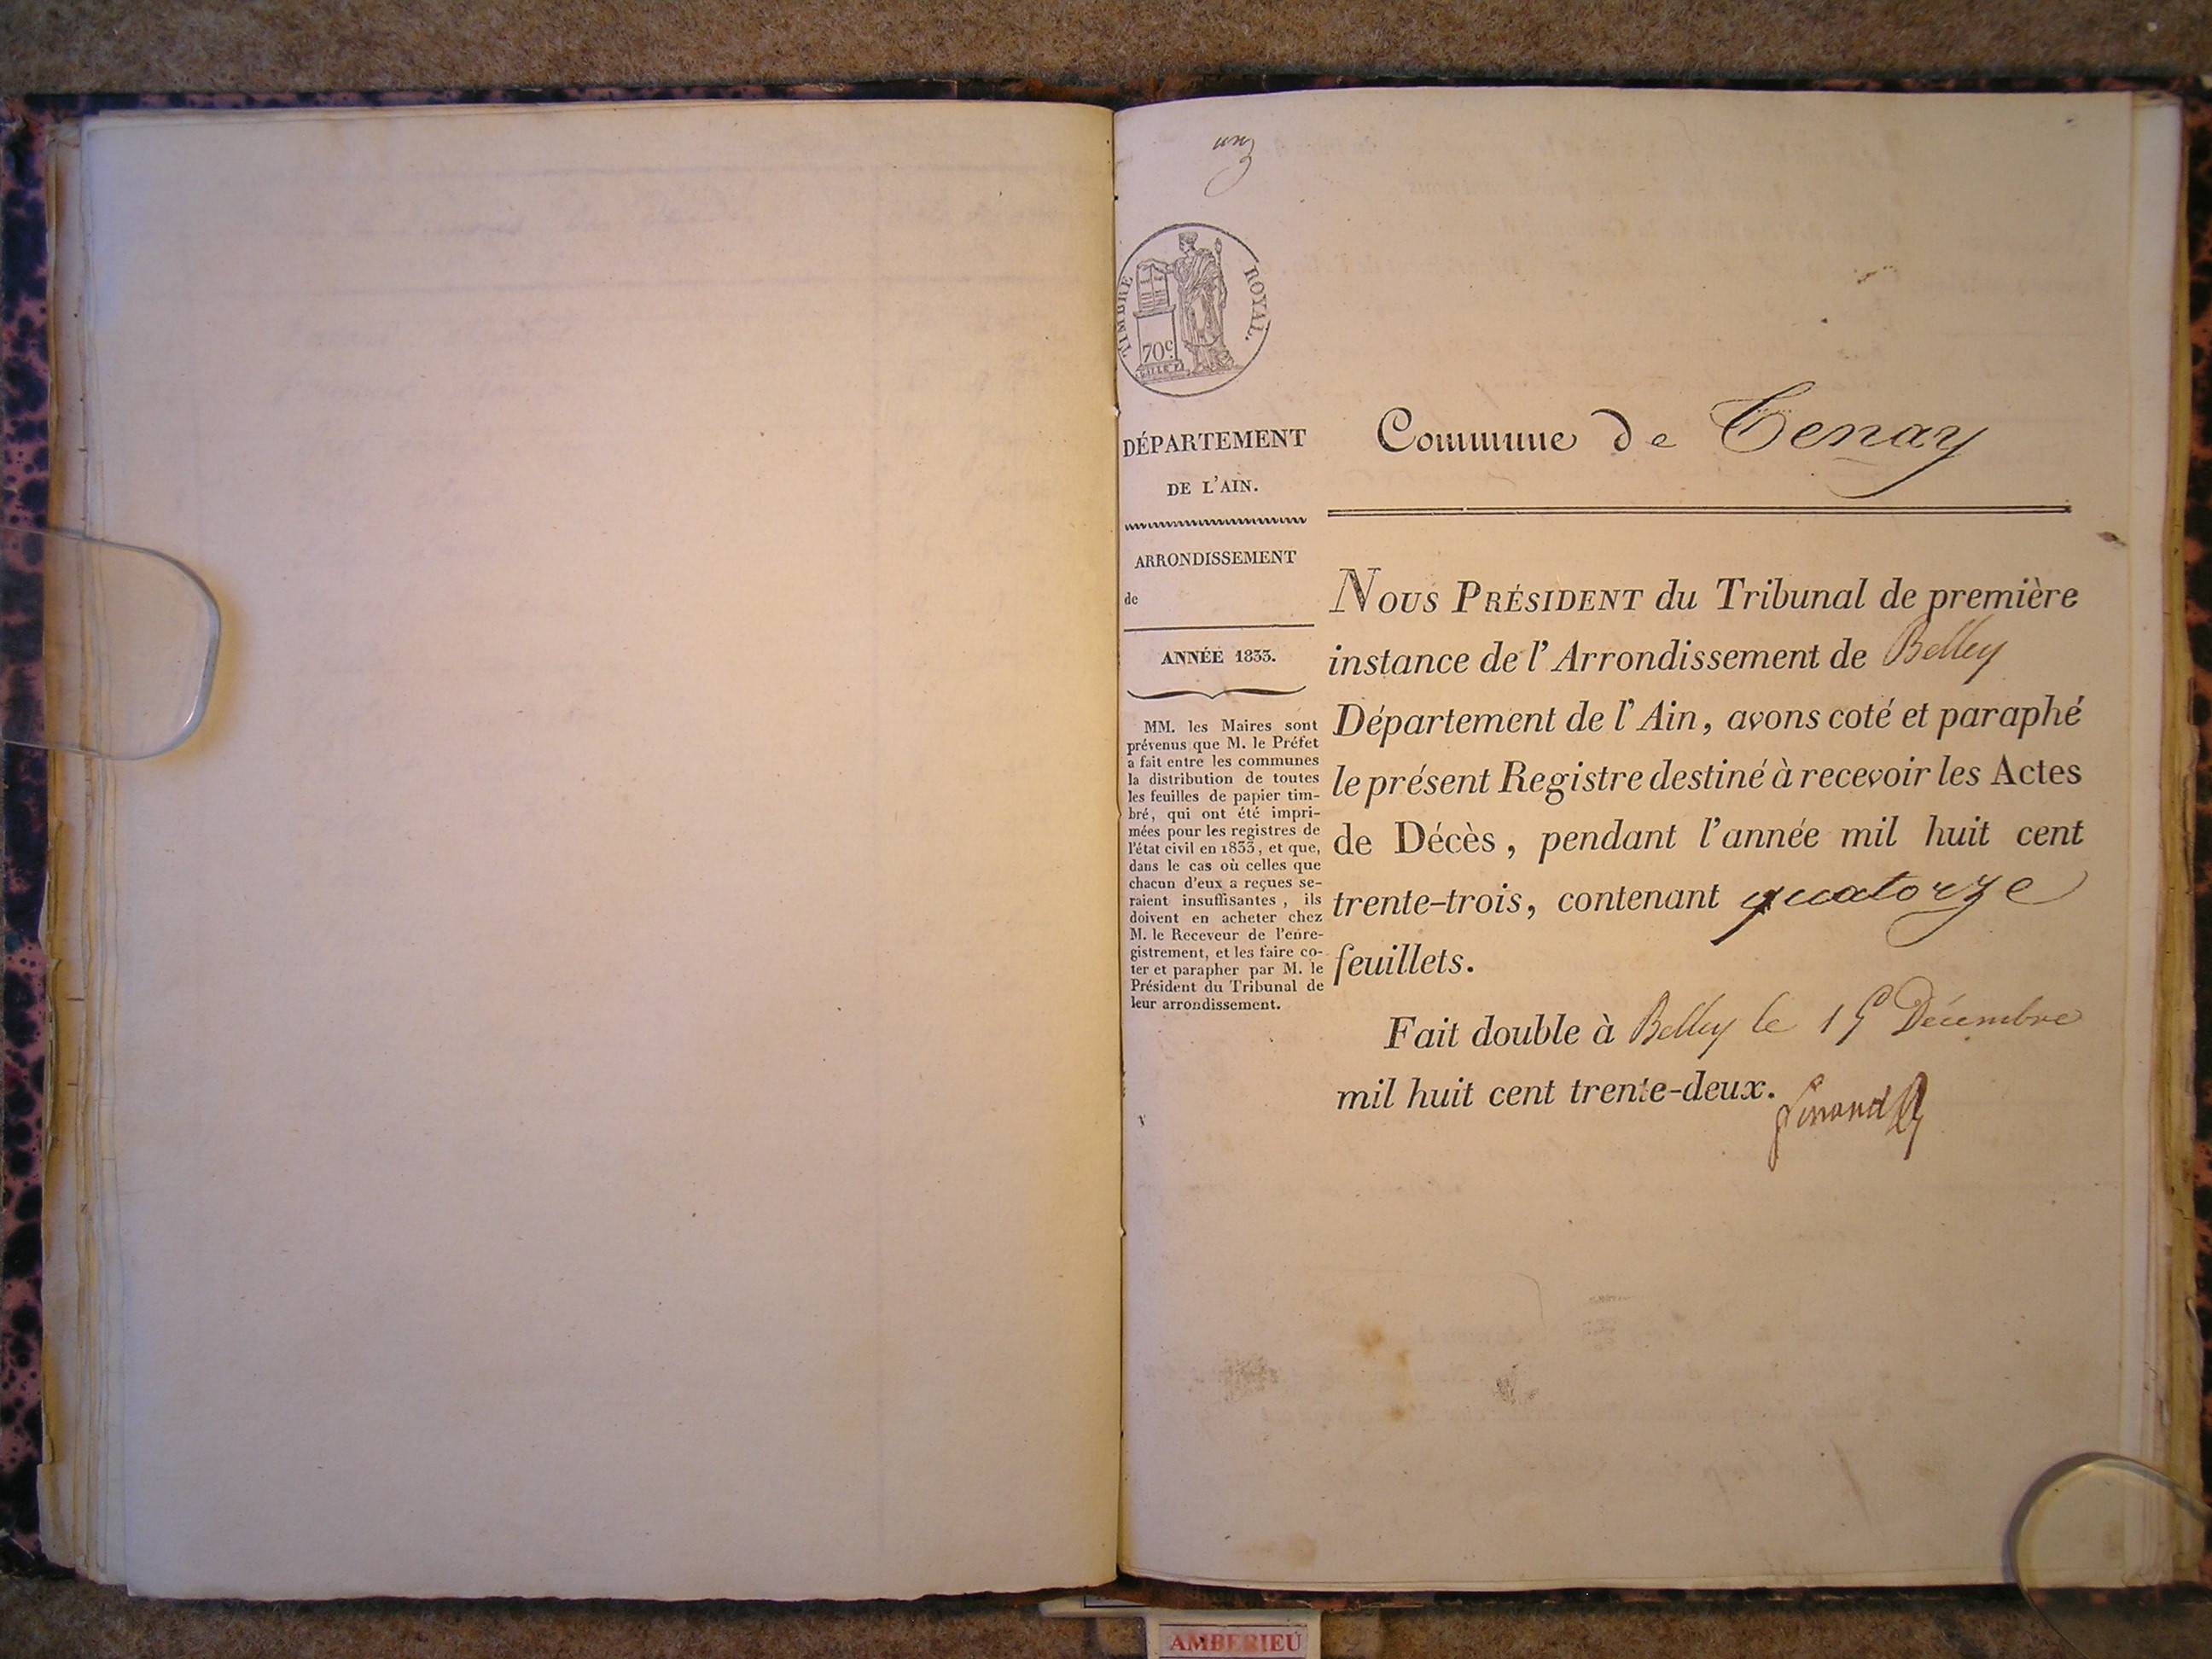 un
TIMBRE ROYAL.
70c.
DÉPARTEMENT
DE L'AIN.
ARRONDISSEMENT
de
ANNÉE 1833.
MM. les Maires sont
prévenus que M. le Préfet
a fait entre les communes
la distribution de toutes
les feuilles de papier tim-
bré, qui ont été impri-
mées pour les registres de
l'état civil en 1833, et que,
dans le cas où celles que
chacun d'eux a reçues se-
raient insuffisantes, ils
doivent en acheter chez
M. le Receveur de l'enre-
gistrement, et les faire co-
ter et parapher par M. le
Président du Tribunal de
leur arrondissement.
Commune de Tenay
NOUS PRÉSIDENT du Tribunal de première
instance de l'Arrondissement de Belley
Département de l'Ain, avons coté et paraphé
le présent Registre destiné à recevoir les Actes
de Décès, pendant l'année mil huit cent
trente-trois, contenant quatorze
feuillets.
Fait double à Belley le Décembre
mil huit cent trente-deux.
AMBERIEU